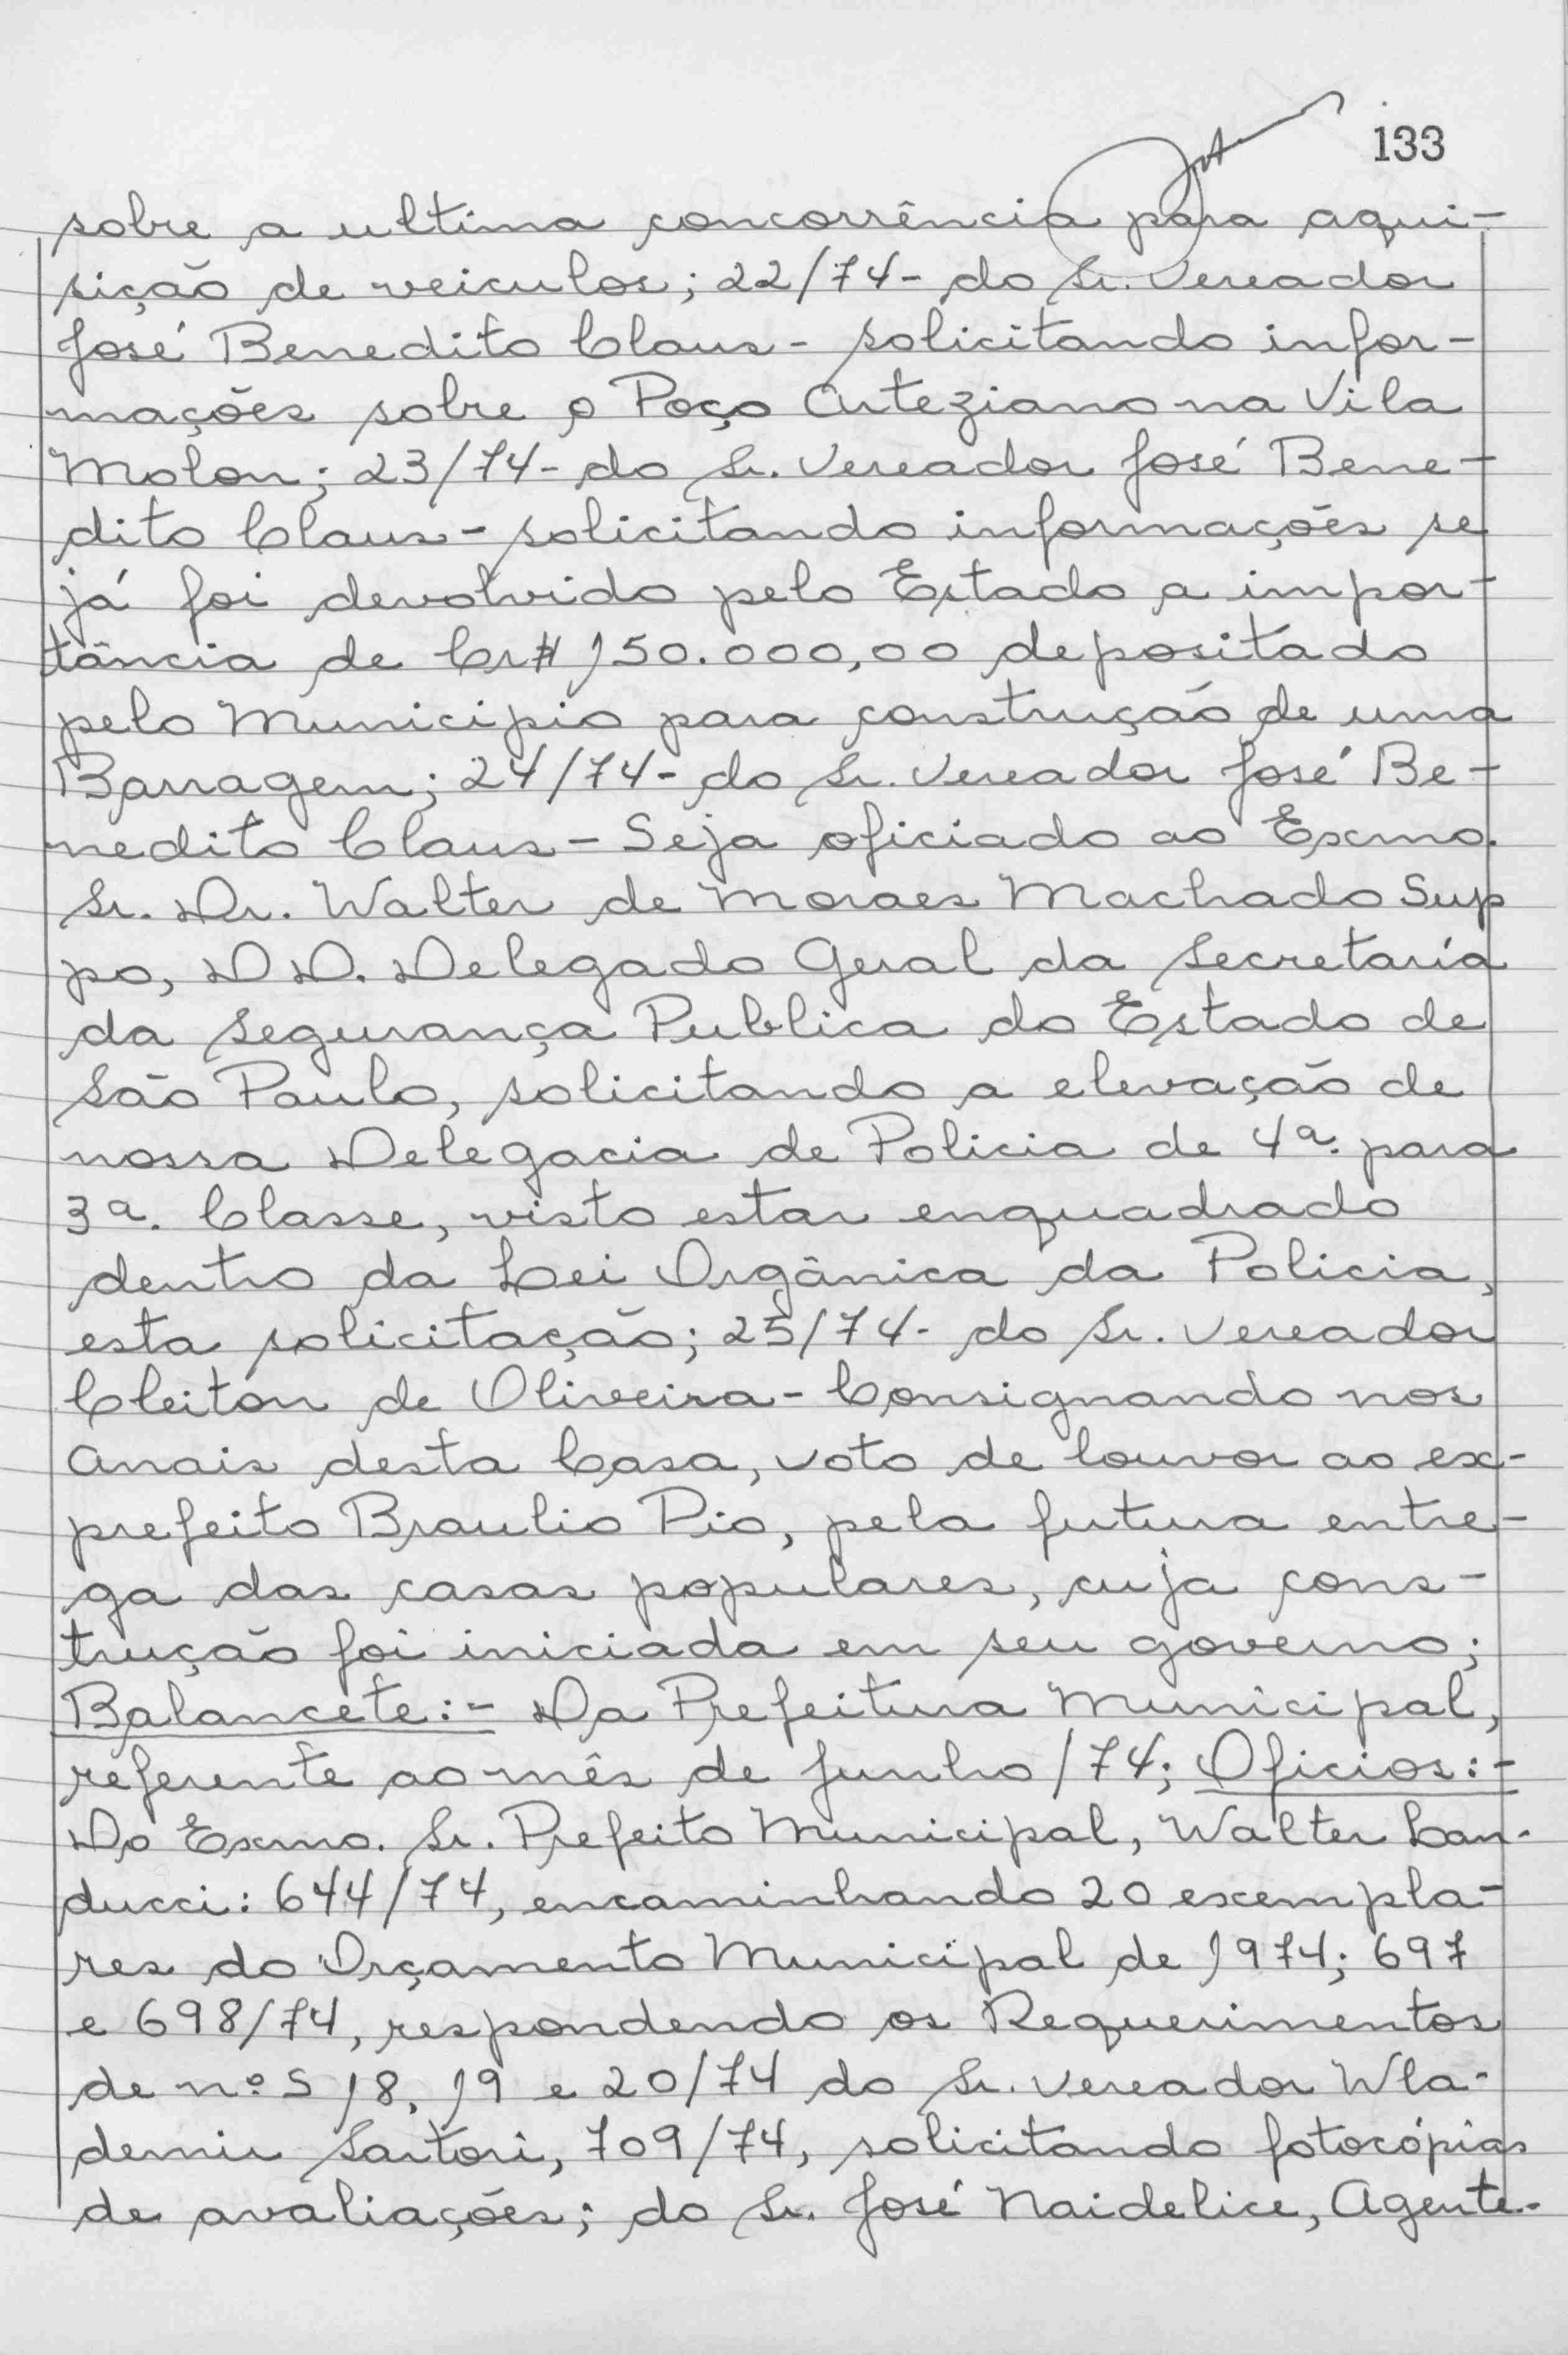 133
sobre a ultima concorrência para aqui-
sição de veiculos; 22/74- do Sr. Vereador
José Benedito Claus- solicitando infor-
mações sobre o Poço Arteziano na Vila
Molon; 23/74- do Sr. Vereador José Bene-
dito Claus- solicitando informações se
já foi devolvido pelo Estado a impor-
tância de Cr$ 150.000,00 depositado
pelo Municipio para construção de uma
Barragem; 24/74- do Sr. Vereador José Be-
nedito Claus- Seja oficiado ao Exmo.
Sr. Dr. Walter de Moraes Machado Sup
po, DD. Delegado Geral da Secretaria
da Segurança Publica do Estado de
São Paulo, solicitando a elevação de
nossa Delegacia de Policia de 4ª. para
3ª. Classe, visto estar enquadrado
dentro da Lei Orgânica da Policia,
esta solicitação; 25/74- do Sr. Vereador
Cleiton de Oliveira- Consignando nos
Anais desta Casa, voto de louvor ao ex-
prefeito Braulio Pio, pela futura entre-
ga das casas populares, cuja cons-
trução foi iniciada em seu governo;
Balancete:- Da Prefeitura Municipal,
referente ao mês de Junho/74; Oficios:-
Do Exmo. Sr. Prefeito Municipal, Walter Lan-
ducci: 644/74, encaminhando 20 exempla-
res do Orçamento Municipal de 1974; 697
e 698/74, respondendo os Requerimentos
de nºs 18, 19 e 20/74 do Sr. Vereador Wla-
demir Sartori, 709/74, solicitando fotocópias
de avaliações; do Sr. José Naidelice, Agente-